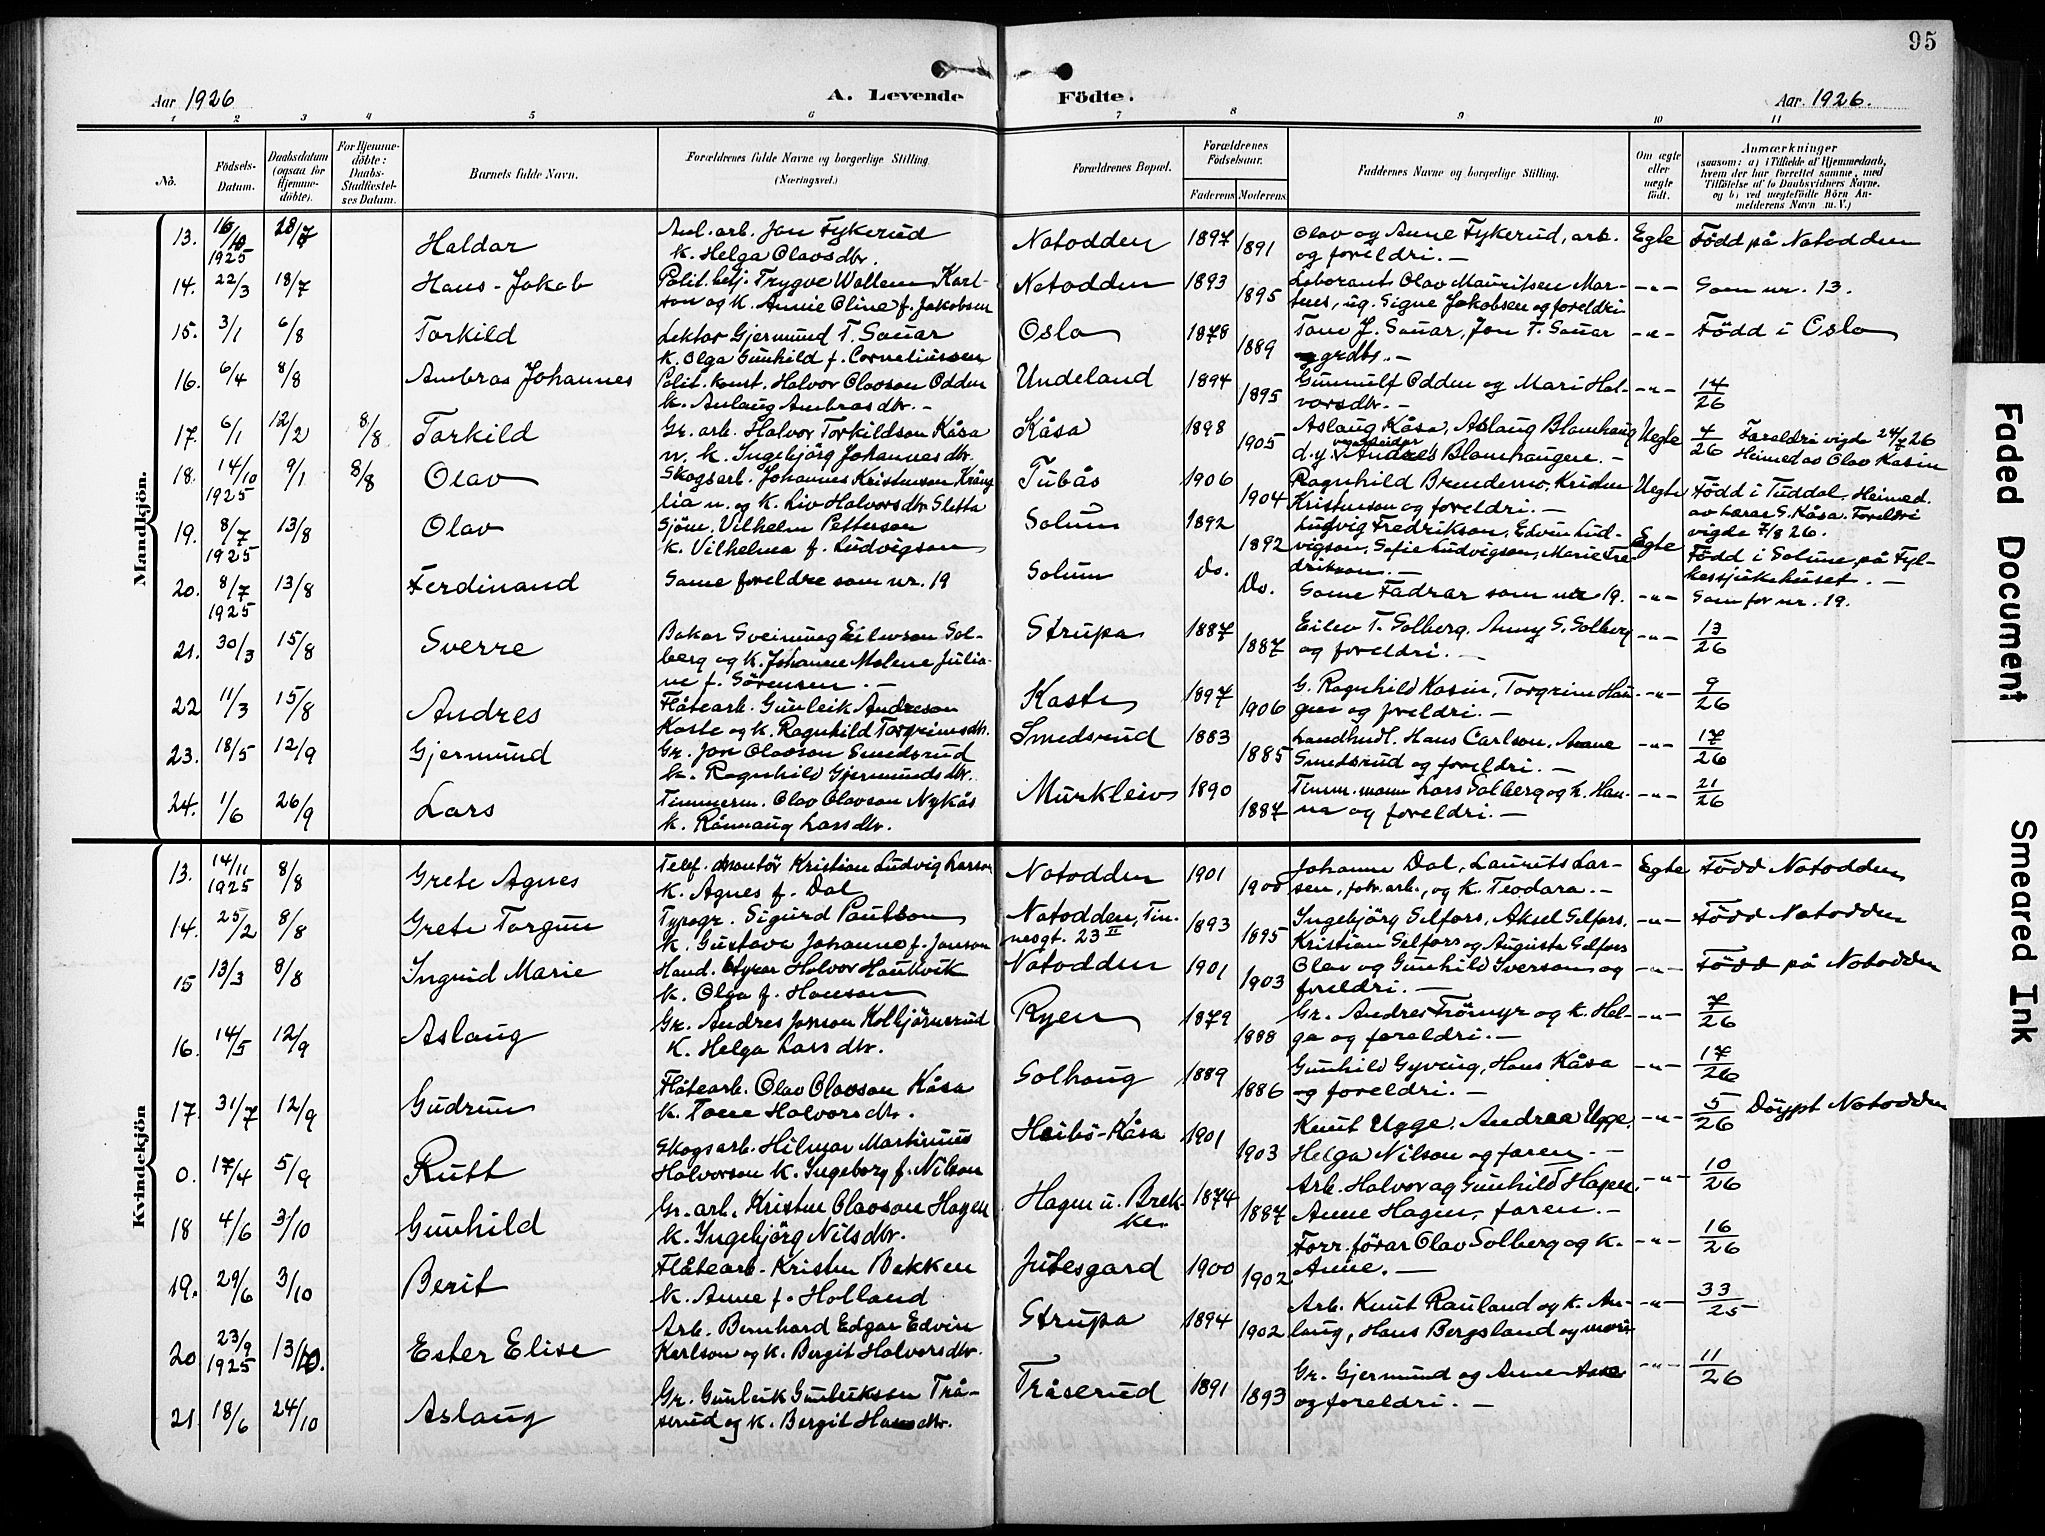 95
Aar 1926
A. Levende
Födte.
Aar. 1926.
1 2 3 4 5 6 7 8 9 10 11
No.
Födsels-
Datum.
Daabsdatum
(ogsaa for
Hjemme-
döbte).
For Hjemme-
döbte:
Daabs-
Stadfæstel-
ses Datum.
Barnets fulde Navn.
Forældrenes fulde Navne og borgerlige Stilling.
(Næringsvei.)
Forældrenes Bopæl.
Forældrenes
Födselsaar.
Faderens
Moderens
Faddernes Navne og borgerlige Stilling.
Om ægte
eller
uægte
födt.
Anmærkninger
(saasom: a) i Tilfælde af Hjemmedaab,
hvem der har forrettet samme, med
Tilföielse af to Daabsvidners Navne,
og b) ved uægtefödte Börn An-
melderens Navn m. V.)
Mandkjön.
13. 16/10 1925 28/7 Haldor
Anl. arb. Jon Fykerud
K. Helga Olavsdtr.
Notodden 1897 1891
Olav og Anne Fykerud, arb.
og foreldri. —
Egte Född på Notodden
14. 22/3 18/7 Hans-Jakob
Polit. betj. Trygve Wollem Karl-
son og K. Annie Oline f. Jakobsen
Notodden 1893 1895
Laborants Olav Mauritsen Mar-
tens, ug. Signe Jakobsen og foreldri
-"- Som nr. 13.
15. 3/1 6/8 Torkild
Lektor Gjermund T. Sauar
K. Olga Gunhild f. Corneliussen
Oslo 1878 1889
Tone J. Sauar, Jon T. Sauar
grdbr. —
-"- Född i Oslo
16. 6/4 8/8 Ambros Johannes
Polit. konst. Halvor Olavson Odden
K. Anlaug Ambrosdtr. —
Undeland 1894 1895
Gunnulf Odden og Mari Hal-
vorsdtr. —
-"- 14/26
17. 6/1 12/2 8/8 Torkild
Gr. arb. Halvor Torkildson Kåsa
n. k. Ingebjörg Johannesdtr.
Kåsa 1898 1905
Aslaug Kåsa, Aslaug Blomhaug
d.y. Andres Blomhaugen. —
Uegte 4/26 Foreldri vigde 24/7 26
Heimedas Olav Kasin
18. 14/10 1925 9/1 8/8 Olav
Skogsarb. Johannes Kristenson Kröng
lia u. og K. Liv Halvorsdtr Sletta
Tubås 1906 1904
Ragnhild Brendemo, Kristen
Kristenson og foreldri. —
Uegte Född i Tuddal. Heimed.
av lærar S. Kåsa. Foreldri
vigde 7/8 26.
19. 8/7 1925 13/8 Olav
Sjöm. Vilhelm Petterson
K. Vilhelma f. Ludvigson
Solum 1892 1892
Ludvig Fredrikson, Edvin Lud-
vigson, Sofie Ludvigson, Marie Fre
drikson. —
Egte Född i Solum, på Fyl-
kessjukehuset. —
20. 8/7 1925 13/8 Ferdinand
Same foreldre som nr. 19
Solum Do. Do.
Same Fadrar som nr 19.
-"- Som for nr. 19.
21. 30/3 15/8 Sverre
Bakar Sveinung Eilevson Sol-
berg og K. Johanne Malene Julia-
ne f. Sörensen. —
Strupa 1887 1887
Eilev T. Solberg, Anny S. Solberg
og foreldri. —
-"- 13/26
22 11/3 15/8 Andres
Flåtearb. Gunleik Andreson
Kaste og K. Ragnhild Torgrimsdtr.
Kaste 1897 1906
G. Ragnhild Kasin, Torgrim Hau-
gen og foreldri. —
-"- 9/26
23. 18/5 12/9 Gjermund
Gr. Jon Olavson Smedsrud
K. Ragnhild Gjermundsdtr.
Smedsrud 1883 1885
Landhndl. Hans Carlson, Anne
Smedsrud og foreldri. —
-"- 17/26
24. 1/6 26/9 Lars
Timmerm. Olav Olavson Nykås
K. Rönnaug Larsdtr.
Murkleiv 1890 1887
Timm.mann Lars Solberg og K. Han-
na og foreldri. —
-"- 21/26
Kvindekjön
13. 14/11 1925 8/8 Grete Agnes
Telef. montör Kristian Ludvig Larson
K. Agnes f. Dal
Notodden 1901 1900
Johanne Dal, Lauruts Lar-
sen, fabr. arb., og K. Teodora. —
Egte Född Notodden
14. 25/2 8/8 Grete Torgun
Typogr. Sigurd Paulson
K. Gustava Johanne f. Jonson
Notodden, Tin-
nesgt. 23 II 1893 1895
Ingebjörg Selfors, Aksel Selfors,
Kristian Selfors og Augusta Selfors
-"- Född Notodden
15 13/3 8/8 Ingrid Marie
Hand. styrar Halvor Haukvik
K. Olga f. Hanson
Notodden 1901 1903
Olav og Gunhild Iverson og
foreldri. —
-"- Född på Notodden
16. 14/5 12/9 Aslaug
Gr. Andres Jonson Kolbjörnsrud
K. Helga Larsdtr.
Ryen 1879 1888
Gr. Andres Trömyr og K. Hel-
ga og foreldri. —
-"- 7/26
17. 31/7 12/9 Gudrun
Flåtearb. Olav Olavson Kåsa
K. Tone Halvorsdtr.
Solhaug 1889 1886
Gunhild Gyving, Hans Kåsa
og foreldri. —
-"- 17/26
0. 17/4 5/9 Rutt
Skogsarb. Hilmar Martinius
Halvorson K. Ingeborg f. Nilson
Heibö-Kåsa 1901 1903
Knut Ugge, Andrea Ugge,
Helga Nilson og faren. —
-"- 5/26 Döypt Notodden
18 4/6 3/10 Gunhild
Gr. arb. Kristen Olavson Hagen
K. Ingebjörg Nilsdtr.
Hagen u. Brek-
ke 1874 1887
Arb. Halvor og Gunhild Hagen,
Anne Hagen, faren. —
-"- 10/26
19. 29/6 3/10 Berit
Flåtearb. Kristen Bakken
K. Anne f. Holland
Jutesgard 1900 1902
Forr.förar Olav Solberg og K.
Anne. —
-"- 16/26
20 23/9 1925 13/10. Ester Elise
Arb. Bernhard Edgar Edvin
Karlson og K. Bergit Halvorsdtr.
Strupa 1894 1902
Arb. Knut Rauland og K. An-
laug, Hans Bergsland og mori
-"- 33/25
21. 18/6 24/10 Aslaug
Gr. Gunleik Gunleikson Trå-
serud og K. Bergit Hansdtr.
Tråserud 1891 1893
Gr. Gjermund og Anne Aase
og foreldri. —
-"- 11/26
Faded Document
Smeared Ink